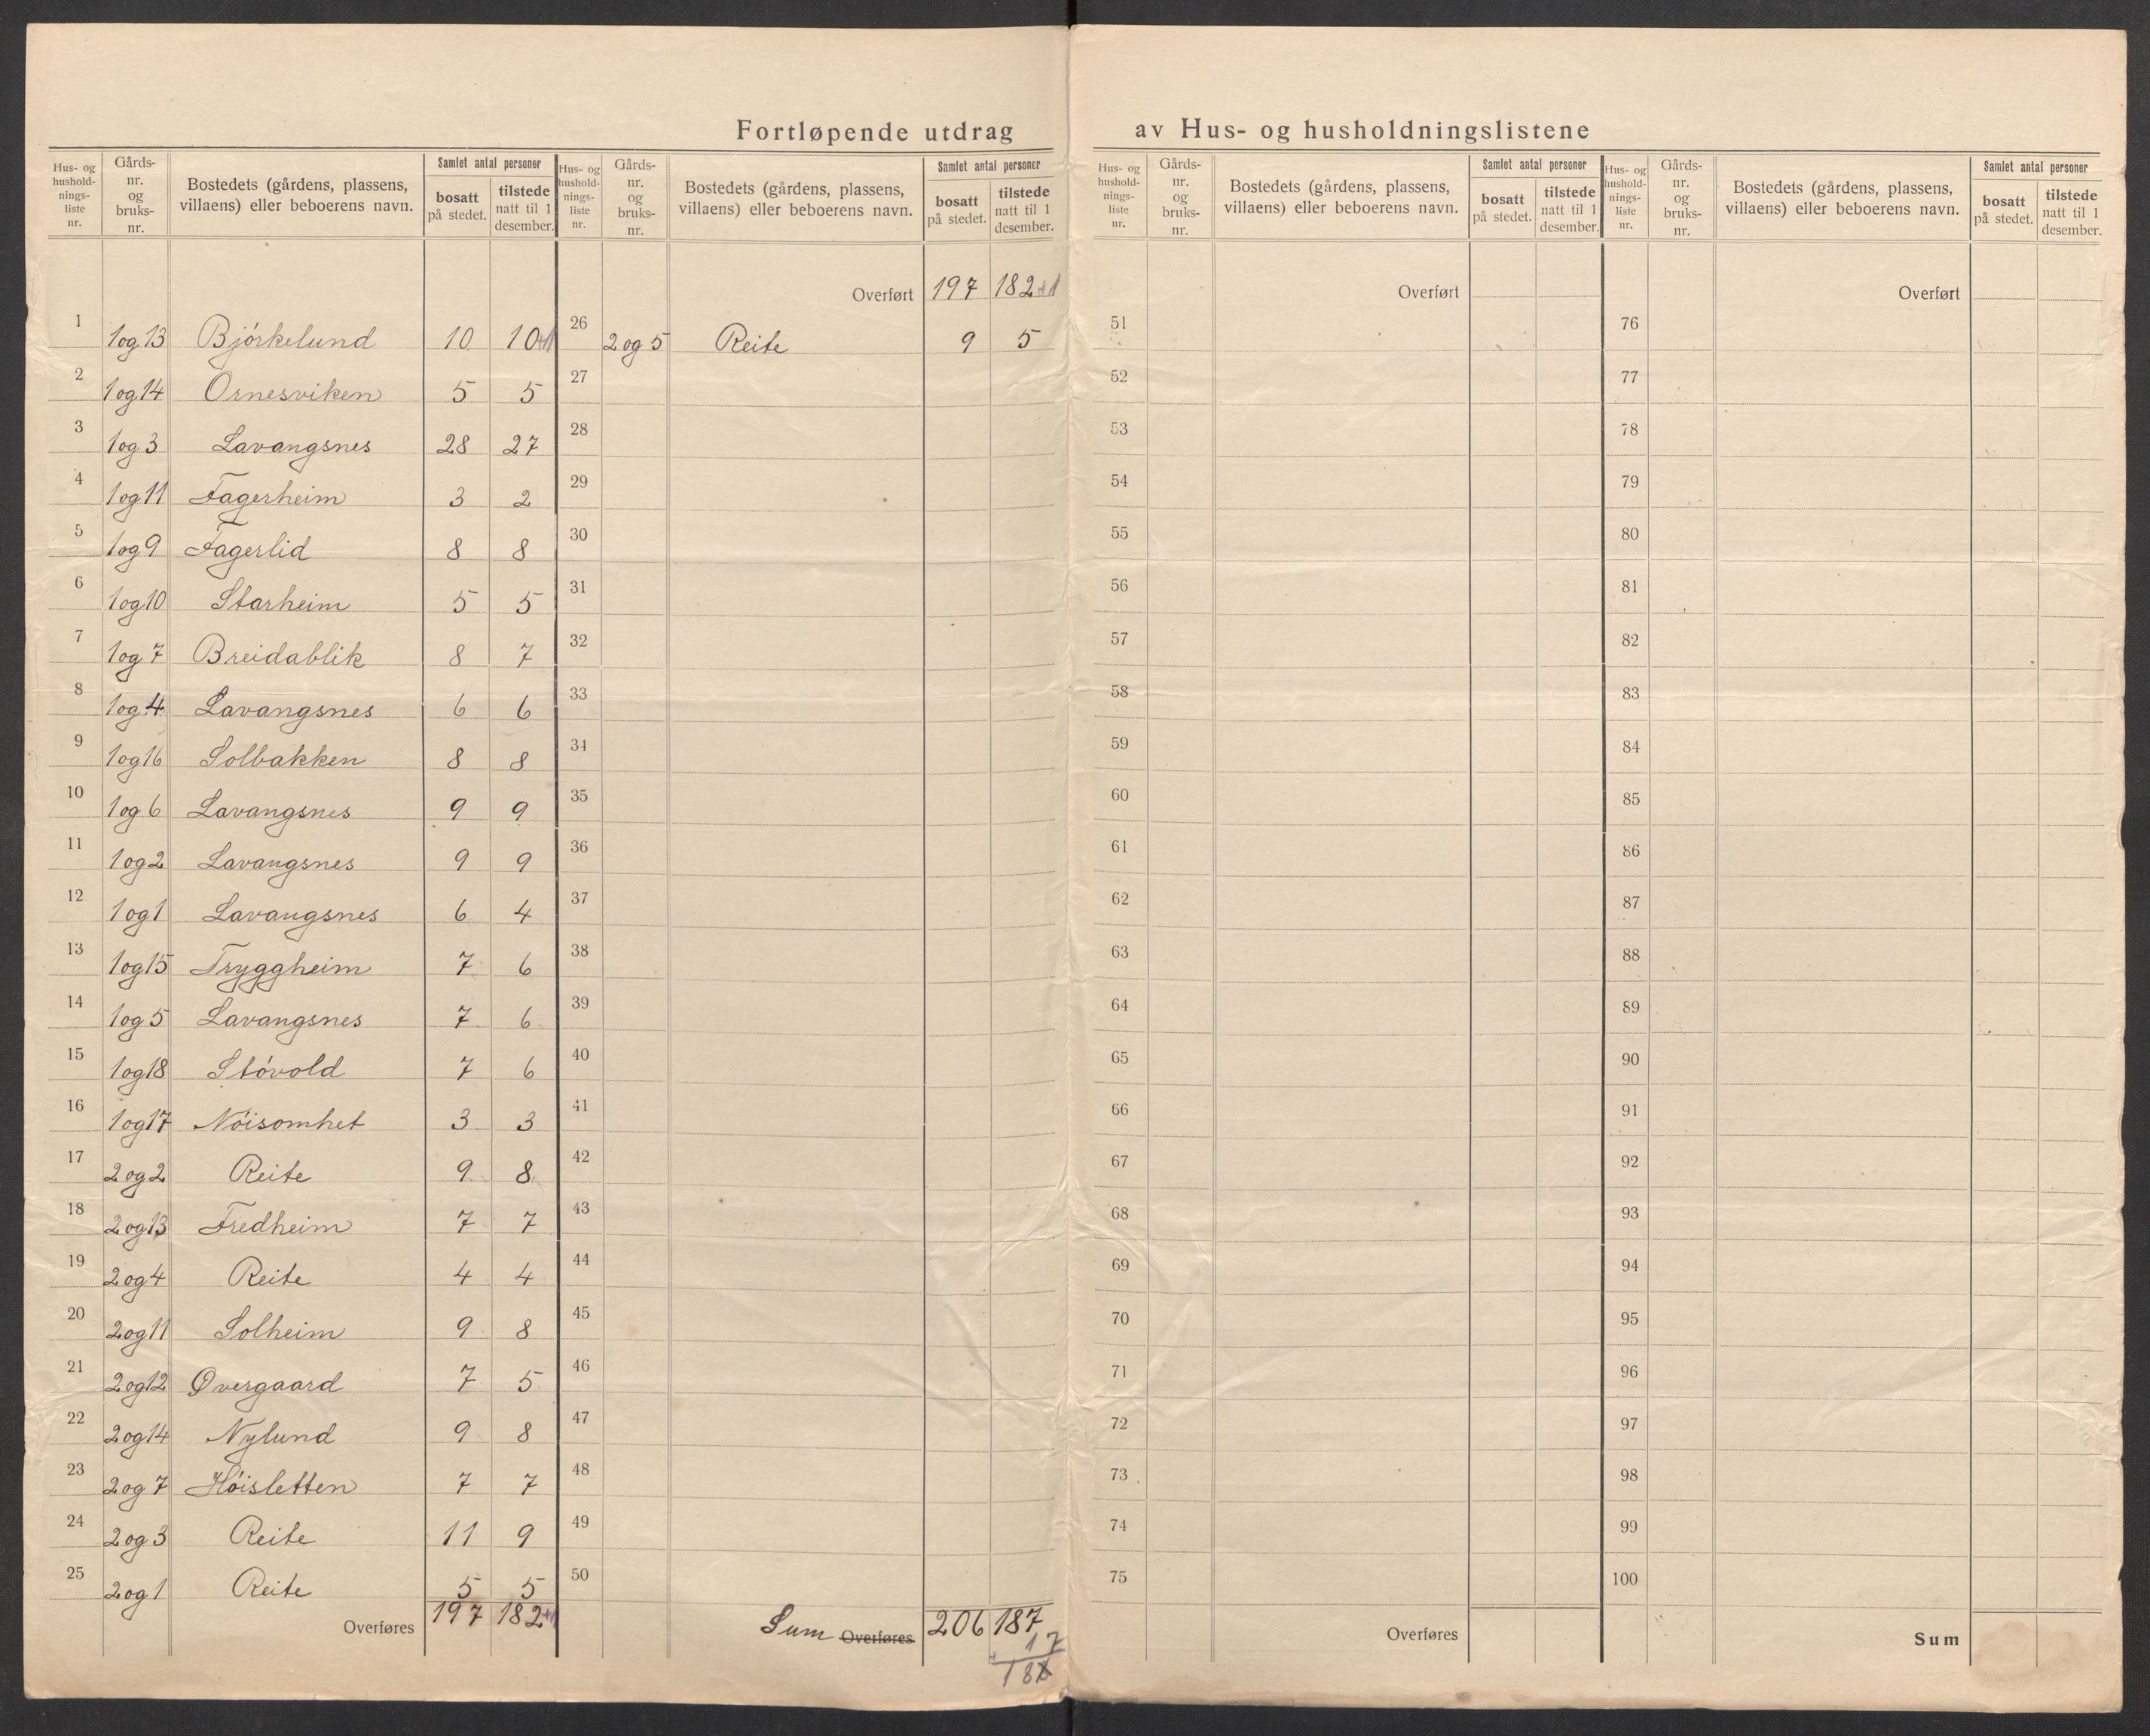 Fortløpende utdrag av Hus- og husholdningslistene
Hus- og husholdnings-liste nr. | Gårds-nr. og bruks-nr. | Bostedets (gårdens, plassens, villaens) eller beboerens navn. | Samlet antal personer | bosatt på stedet. | tilstede natt til 1 desember.
1 | 1og13 | Bjórkelund | 10 | 10+1
2 | 1og14 | Ornesviken | 5 | 5
3 | 1og3 | Lavangsnes | 28 | 27
4 | 1og11 | Fagerheim | 3 | 2
5 | 1og9 | Fagerlid | 8 | 8
6 | 1og10 | Starheim | 5 | 5
7 | 1og7 | Breidablik | 8 | 7
8 | 1og4 | Lavangsnes | 6 | 6
9 | 1og16 | Solbakken | 8 | 8
10 | 1og6 | Lavangsnes | 9 | 9
11 | 1og2 | Lavangsnes | 9 | 9
12 | 1og1 | Lavangsnes | 6 | 4
13 | 1og15 | Tryggheim | 7 | 6
14 | 1og5 | Lavangsnes | 7 | 6
15 | 1og18 | Stóvold | 7 | 6
16 | 1og17 | Nóisomhet | 3 | 3
17 | 2og2 | Reite | 9 | 8
18 | 2og13 | Fredheim | 7 | 7
19 | 2og4 | Reite | 4 | 4
20 | 2og11 | Solheim | 9 | 8
21 | 2og12 | Øvergaard | 7 | 5
22 | 2og14 | Nylund | 9 | 8
23 | 2og7 | Hóisletten | 7 | 7
24 | 2og3 | Reite | 11 | 9
25 | 2og1 | Reite | 5 | 5
Overføres | 197 | 182+1
Hus- og husholdnings-liste nr. | Gårds-nr. og bruks-nr. | Bostedets (gårdens, plassens, villaens) eller beboerens navn. | Samlet antal personer | bosatt på stedet. | tilstede natt til 1 desember.
Overført | 197 | 182+1
26 | 2og5 | Reite | 9 | 5
27
28
29
30
31
32
33
34
35
36
37
38
39
40
41
42
43
44
45
46
47
48
49
50
Sum Overføres | 206 | 187
Hus- og husholdnings-liste nr. | Gårds-nr. og bruks-nr. | Bostedets (gårdens, plassens, villaens) eller beboerens navn. | Samlet antal personer | bosatt på stedet. | tilstede natt til 1 desember.
Overført
51
52
53
54
55
56
57
58
59
60
61
62
63
64
65
66
67
68
69
70
71
72
73
74
75
Overføres
Hus- og husholdnings-liste nr. | Gårds-nr. og bruks-nr. | Bostedets (gårdens, plassens, villaens) eller beboerens navn. | Samlet antal personer | bosatt på stedet. | tilstede natt til 1 desember.
Overført
76
77
78
79
80
81
82
83
84
85
86
87
88
89
90
91
92
93
94
95
96
97
98
99
100
Sum